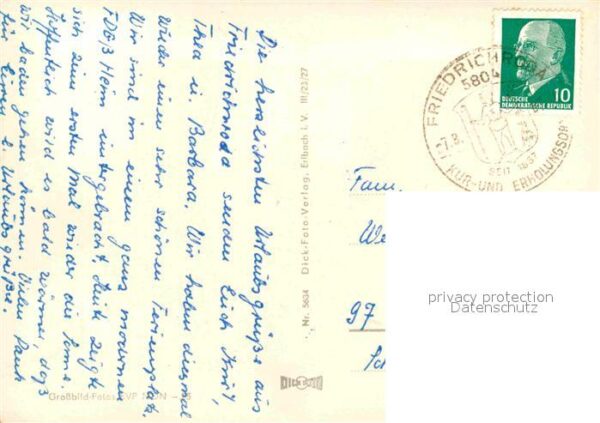 Die herzlichsten Urlaubsgrüße aus
Friedrichroda senden Euch Kurt,
Thea u. Barbara. Wir haben diesmal
wieder einen sehr schönen Ferienplatz.
Wir sind in einem ganz modernen
FDGB Heim untergebracht. Heute zeigte
sich zum ersten Mal wieder die Sonne.
Hoffentlich wird es bald wärmer, daß
wir baden gehen können. Vielen Dank
für Euren Urlaubsgrüße.
Großbild-Foto:
Nr. 5634 Dick-Foto-Verlag, Erlbach i. V. III/23/27
DICK FOTO
FRIEDRICHRODA
5804
SEIT 1837
KUR-UND ERHOLUNGSORT
DEUTSCHE
DEMOKRATISCHE REPUBLIK
10
Fam.
We
97
privacy protection
Datenschutz